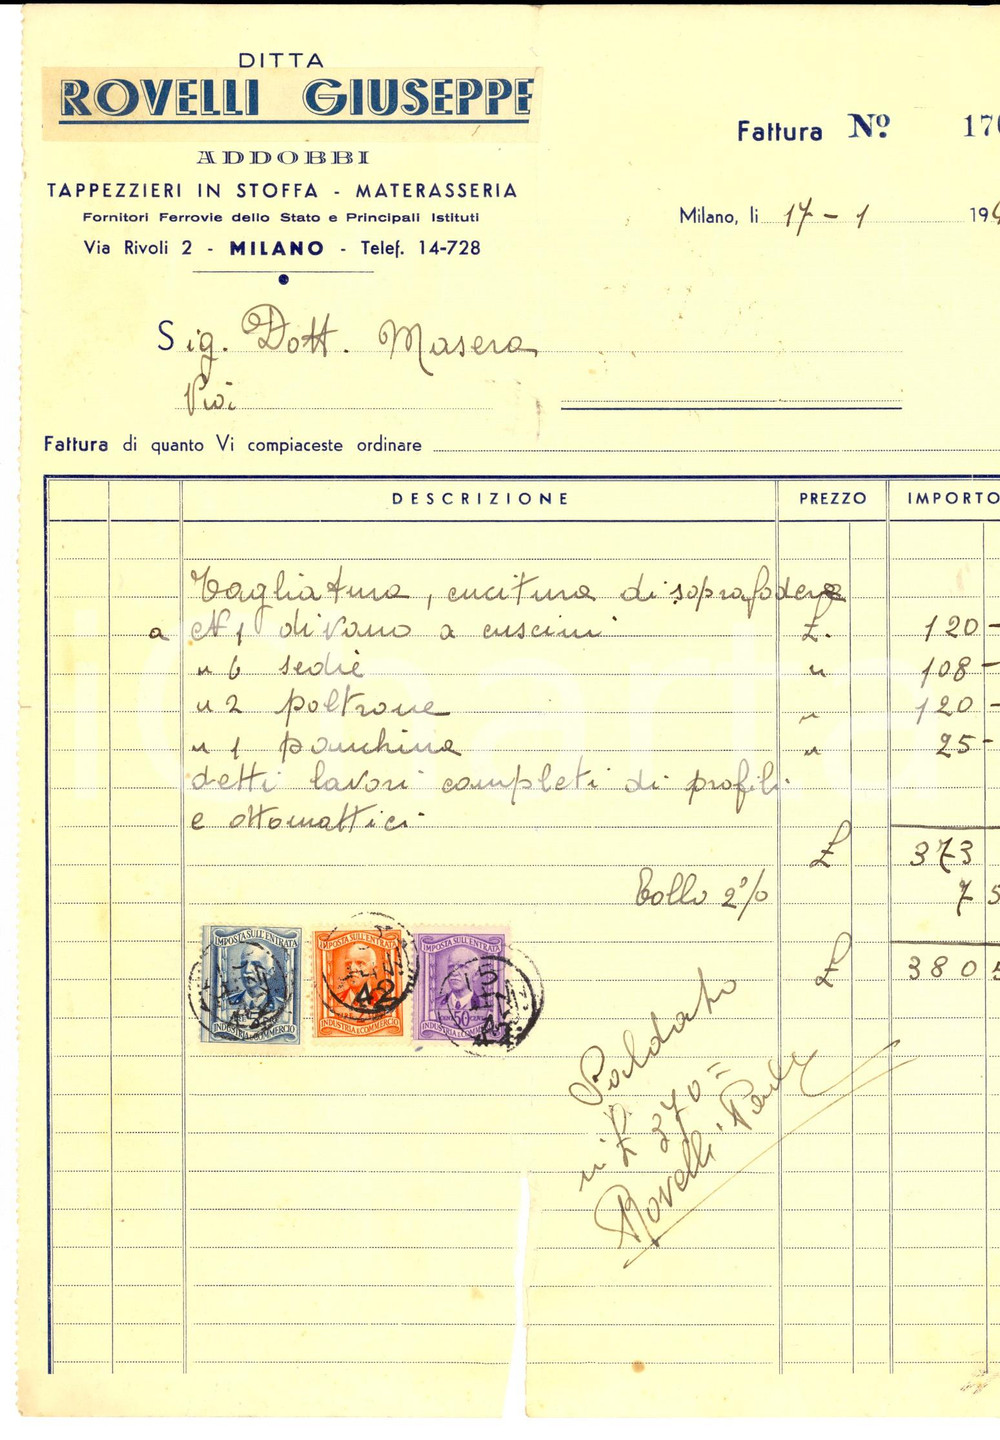 DITTA
ROVELLI GIUSEPPE
ADDOBBI
TAPPEZZIERI IN STOFFA - MATERASSERIA
Fornitori Ferrovie dello Stato e Principali Istituti
Via Rivoli 2 - MILANO - Telef. 14-728
Fattura Nº 170
Milano, li 17 - 1 194
Sig. Dott. Masera
Fattura di quanto Vi compiaceste ordinare
DESCRIZIONE PREZZO IMPORTO
Tagliatura, cucitura di soprafodere
a N 1 divano a cuscini £. 120 -
" 6 sedie " 108 -
" 2 poltrone " 120 -
" 1 panchina " 25 -
detti lavori completi di profili
e ottomattici
£ 373
Bollo 2% 7 5
£ 380 5
IMPOSTA SULL'ENTRATA IMPOSTA SULL'ENTRATA IMPOSTA SULL'ENTRATA
42
50
INDUSTRIA E COMMERCIO INDUSTRIA E COMMERCIO INDUSTRIA E COMMERCIO
Saldato
in £ 370 =
Rovelli